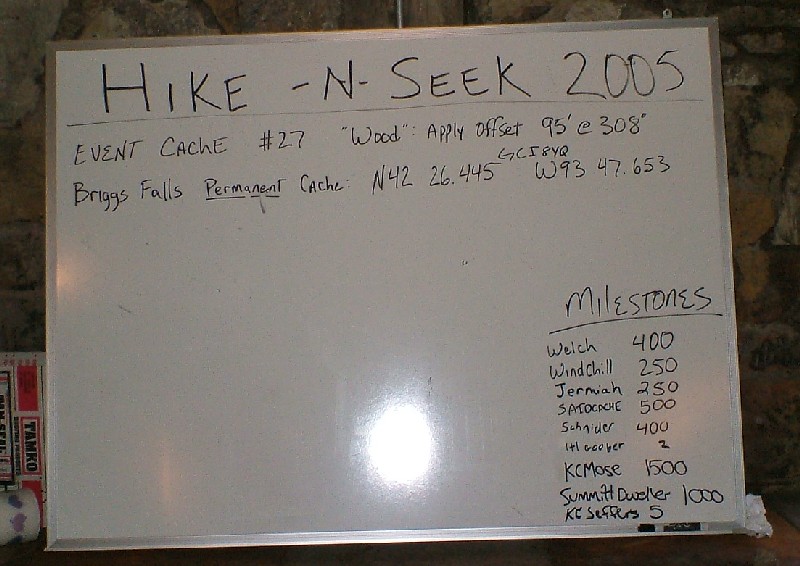 HIKE -N- SEEK 2005
EVENT CACHE #27 "Wood": Apply Offset 95' @ 308°
GCJ8YQ
Briggs Falls Permanent Cache: N42 26.445 W93 47.653
MILESTONES
Welch 400
Windchill 250
Jermiah 250
500
Schnider 400
2
KCMose 1500
Summitt Dweller 1000
KC Seffers 5
TAMKO